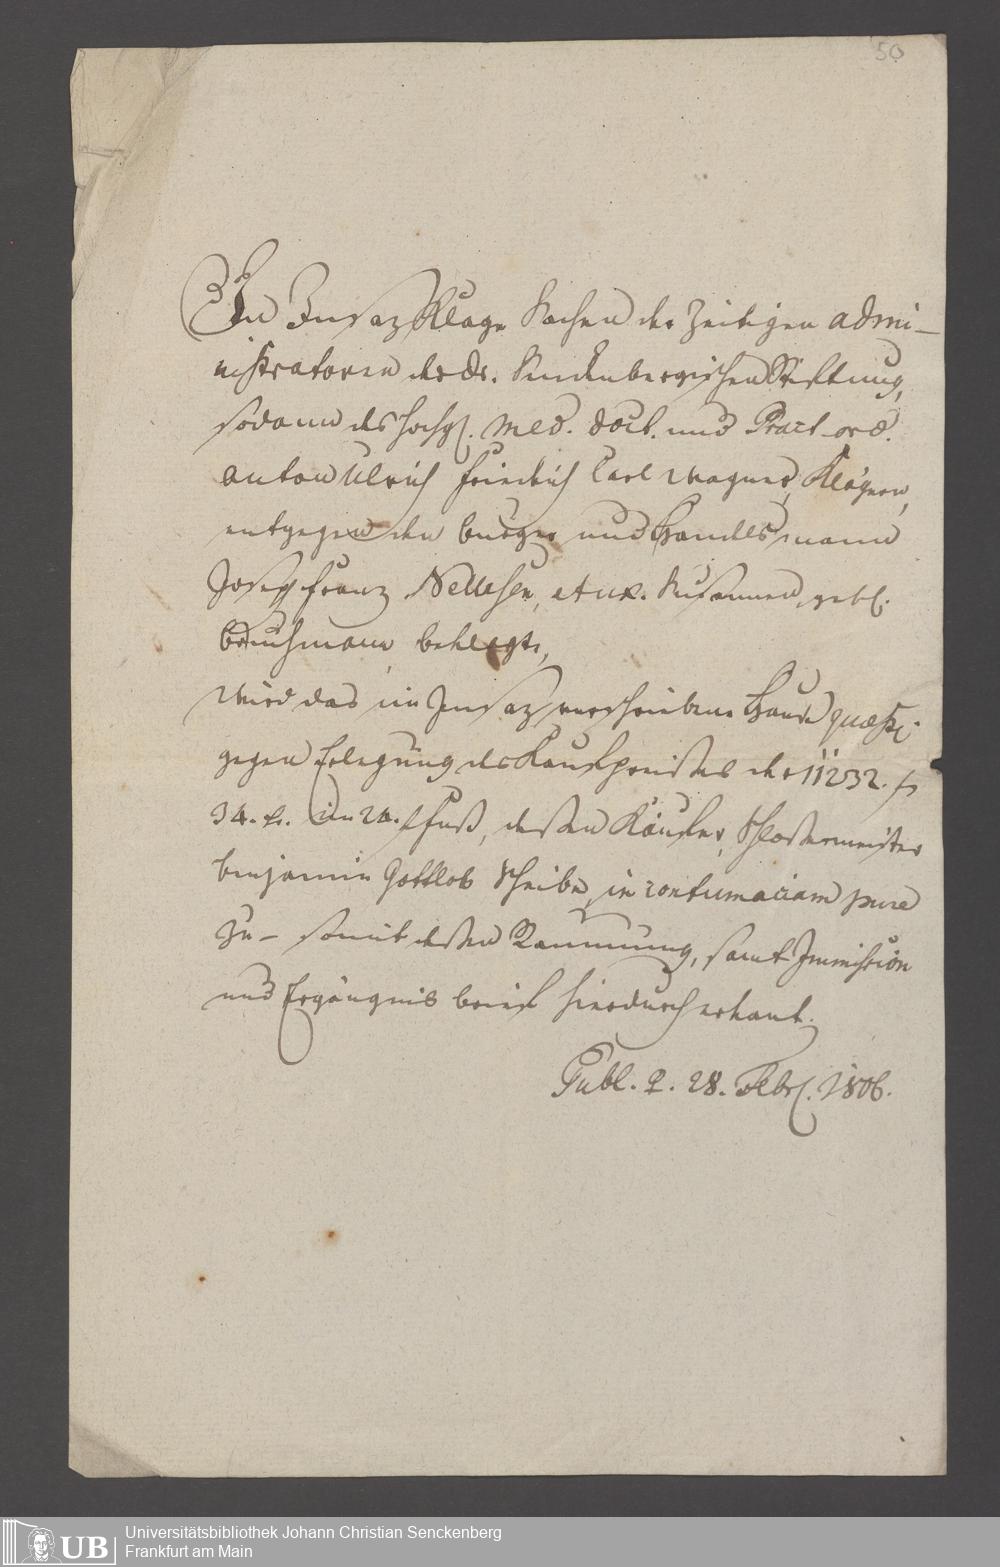 50
In Insaz Klage Sachen der Zeitigen admi-
nistratoren der Dr. Senckenbergischen Stiftung,
sodann des hochgl. Med. Doct. und Pract. ord.
Anton Ulrich Friedrich Carl Wagner, Klägern,
entgegen den burger und Handelsmann
Joseph Franz Nellesen, et ux. Susannen, gebl.
bruchmann, beklagte,
wird das im Insaz verschriebene Hauß quæstl.
gegen Erlegung des Kaufpreißes der 11232. f
34. kr. im 24. f Fuß, dessen Käufer, Schlossermeister
benjamin Gottlob Scheibe, in contumaciam pure
zu- somit dessen Raumung, samt Immission
und Ergängnis brief hierdurch erkant.
Publ. 28. Febrl. 1806.
UB
Universitätsbibliothek Johann Christian Senckenberg
Frankfurt am Main